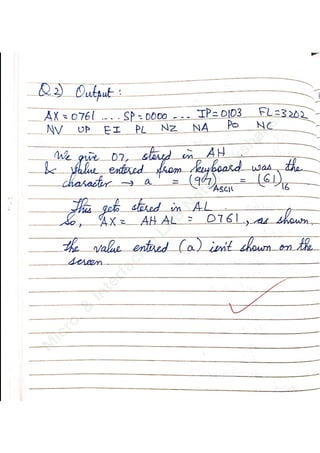 Q2) Output :
AX = 0761 ... SP = 0000 --- IP = 0103 FL = 3202
NV UP EI PL NZ NA PO NC
We give 07, stored in AH.
& value entered from keyboard was the
character → a = (97)ASCII = (61)16
This gets stored in AL.
So, AX = AH AL = 0761, as shown.
The value entered (a) isn't shown on the
screen.
Micro. & Interfac